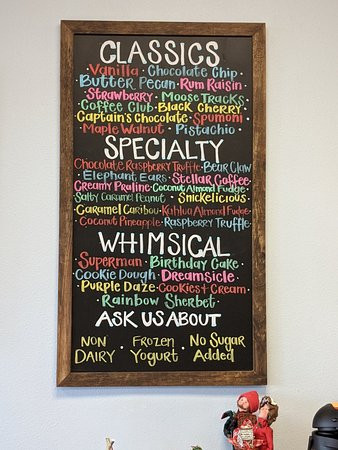 CLASSICS
Vanilla · Chocolate Chip ·
Butter Pecan · Rum Raisin
Strawberry · Moose Tracks
Coffee Club · Black Cherry
Captain's Chocolate · Spumoni
Maple Walnut · Pistachio ·
SPECIALTY
Chocolate Raspberry Truffle · Bear Claw
· Elephant Ears · Stellar Coffee
Creamy Praline · Coconut Almond Fudge ·
Salty Caramel Peanut · Snickelicious ·
Caramel Caribou · Kahlua Almond Fudge
Coconut Pineapple · Raspberry Truffle
WHIMSICAL
Superman · Birthday Cake ·
Cookie Dough · Dreamsicle ·
Purple Daze · Cookies + Cream ·
Rainbow Sherbet ·
ASK US ABOUT
NON DAIRY · FROZEN YOGURT · No SUGAR Added